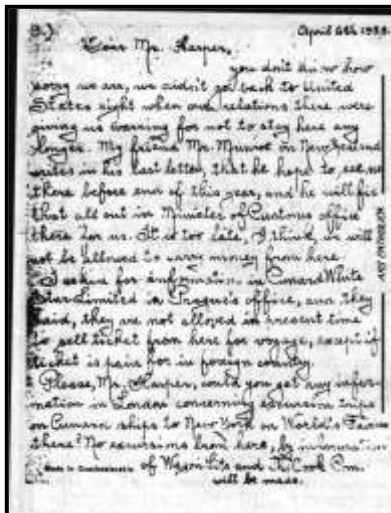 3.). April 6th 1939.
Dear Mr. Harper,
you don't know how
sorry we are, we didn't go back to United
States right when our relations there were
giving us warning for not to stay here any
longer. My friend Mr. Munroe on New Zealand
writes in his last letter, that he hope to see me
there before end of this year, and he will fix
that all out in Minister of Customs office
there for us. It is too late, I think, we will
not be allowed to carry money from here.
I asked for information in Cunard White
Star Limited in Prague's office, and they
said, they are not allowed in present time
to sell ticket from here for voyage, except if
ticket is paid for in foreign country.
Please, Mr. Harper, could you get any infor-
mation in London concerning excursion trips
on Cunard ships to New York on World's Fair
there? No excursions from here, by information
of Wagon-Lits and Th. Cook Com.
will be made.
Made in Czechoslovakia